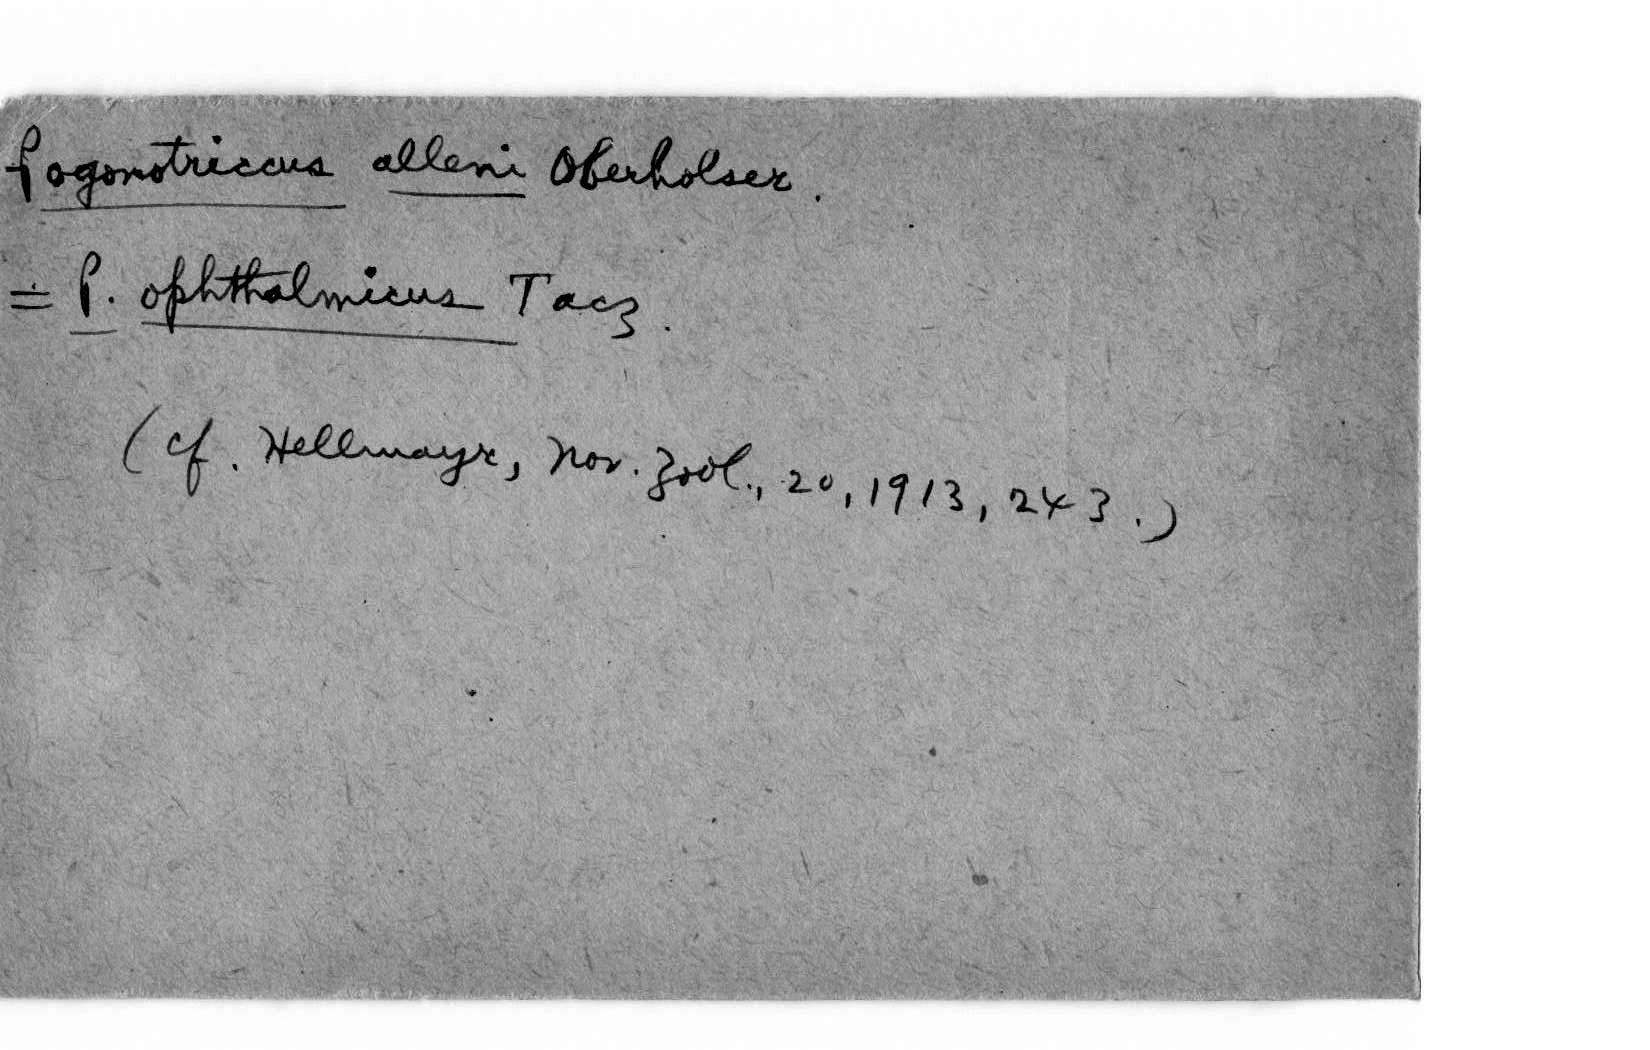 Pogonotriccus alleni Oberholser.
= P. ophthalmicus Tacz.
(cf. Hellmayr, Nov. Zool., 20, 1913, 243.)